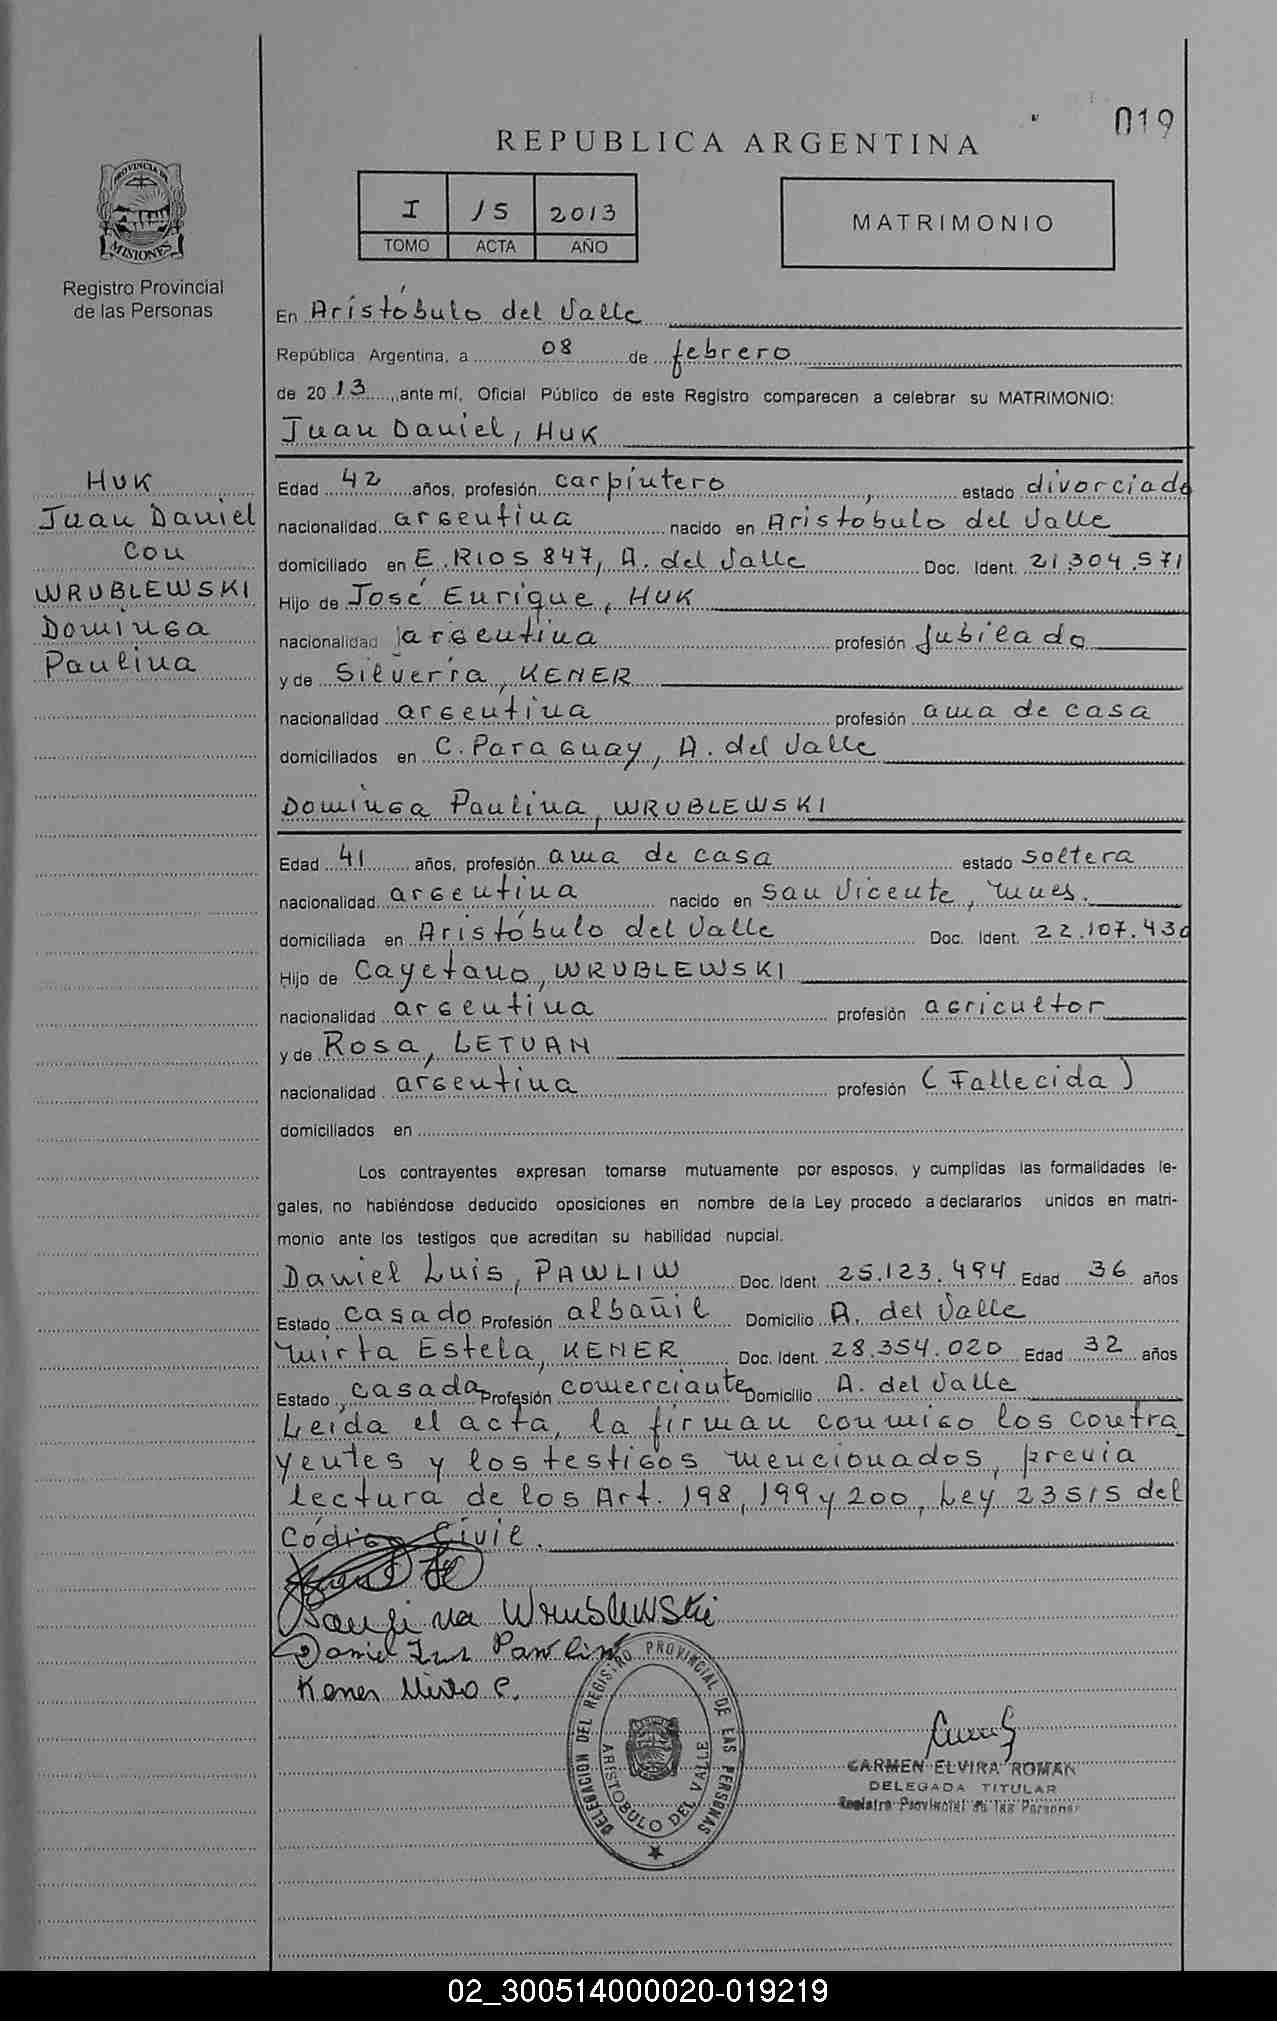 019
REPUBLICA ARGENTINA
PROVINCIA DE
MISIONES
Registro Provincial
de las Personas
I 15 2013
TOMO ACTA AÑO
MATRIMONIO
En Arístóbulo del Valle
República Argentina, a 08 de febrero
de 2013 ante mí, Oficial Público de este Registro comparecen a celebrar su MATRIMONIO:
Juan Daniel, HUK
HUK
Juan Daniel
con
WRUBLEWSKI
Dominga
Paulina
Edad 42 años, profesión carpintero, estado divorciado
nacionalidad argentina nacido en Aristóbulo del Valle
domiciliado en E. RIOS 847, A. del Valle Doc. Ident. 21.304.571
Hijo de José Enrique, HUK
nacionalidad argentina profesión jubilado
y de Silveria, KENER
nacionalidad argentina profesión ama de casa
domiciliados en C. Paraguay, A. del Valle
Dominga Paulina, WRUBLEWSKI
Edad 41 años, profesión ama de casa estado soltera
nacionalidad argentina nacido en San Vicente, Mnes.
domiciliada en Aristóbulo del Valle Doc. Ident. 22.107.430
Hijo de Cayetano, WRUBLEWSKI
nacionalidad argentina profesión agricultor
y de Rosa, LETUAN
nacionalidad argentina profesión (Fallecida)
domiciliados en
Los contrayentes expresan tomarse mutuamente por esposos, y cumplidas las formalidades le-
gales, no habiéndose deducido oposiciones en nombre de la Ley procedo a declararlos unidos en matri-
monio ante los testigos que acreditan su habilidad nupcial.
Daniel Luis, PAWLIW Doc. Ident. 25.123.494 Edad 36 años
Estado casado Profesión albañil Domicilio A. del Valle
Mirta Estela, KENER Doc. Ident. 28.354.020 Edad 32 años
Estado casada Profesión comerciante Domicilio A. del Valle
Leída el acta, la firman conmigo los contra
yentes y los testigos mencionados, previa
lectura de los Art. 198, 199 y 200, Ley 23515 del
Código Civil.
Paulina Wrublewski
Daniel Luis Pawliw
Kener Mirta E.
DELEGACION DEL REGISTRO PROVINCIAL DE LAS PERSONAS
ARISTOBULO DEL VALLE
CARMEN ELVIRA ROMAN
DELEGADA TITULAR
Registro Provincial de las Personas
02_300514000020-019219